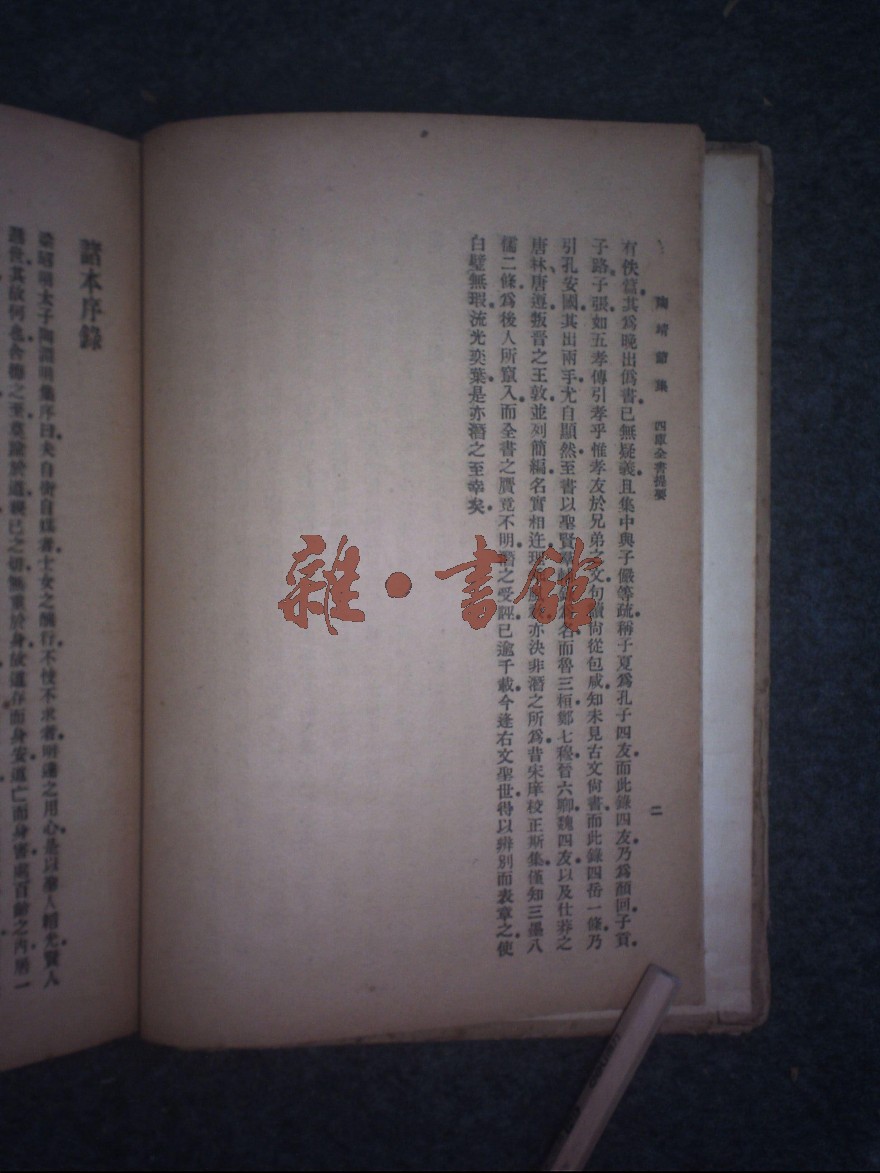 陶靖節集 四庫全書提要 二
有佚篇其爲晚出僞書已無疑義且集中與子儼等疏稱子夏爲孔子四友而此錄四友乃爲顏回子貢
子路子張如五孝傳引孝乎惟孝友於兄弟之文句讀尙從包咸知未見古文尙書而此錄四岳一條乃
引孔安國其出兩手尤自顯然至書以聖賢羣輔錄爲名而魯三桓鄭七穆晉六卿魏四友以及仕莽之
唐林唐遵叛晉之王敦並列簡編名實相迕理亦決非潛之所爲昔宋庠校正斯集僅知三墨八
儒二條爲後人所竄入而全書之贗竟不明潛之受誣已逾千載今逢右文聖世得以辨別而表章之使
白璧無瑕流光奕葉是亦潛之至幸矣
諸本序錄
梁昭明太子陶淵明集序曰夫自衒自媒者士女之醜行不忮不求者明達之用心是以聖人韜光賢人
遯世其故何也含德之至莫踰於道親己之切無重於身故道存而身安道亡而身害處百齡之內居一
雜·書館